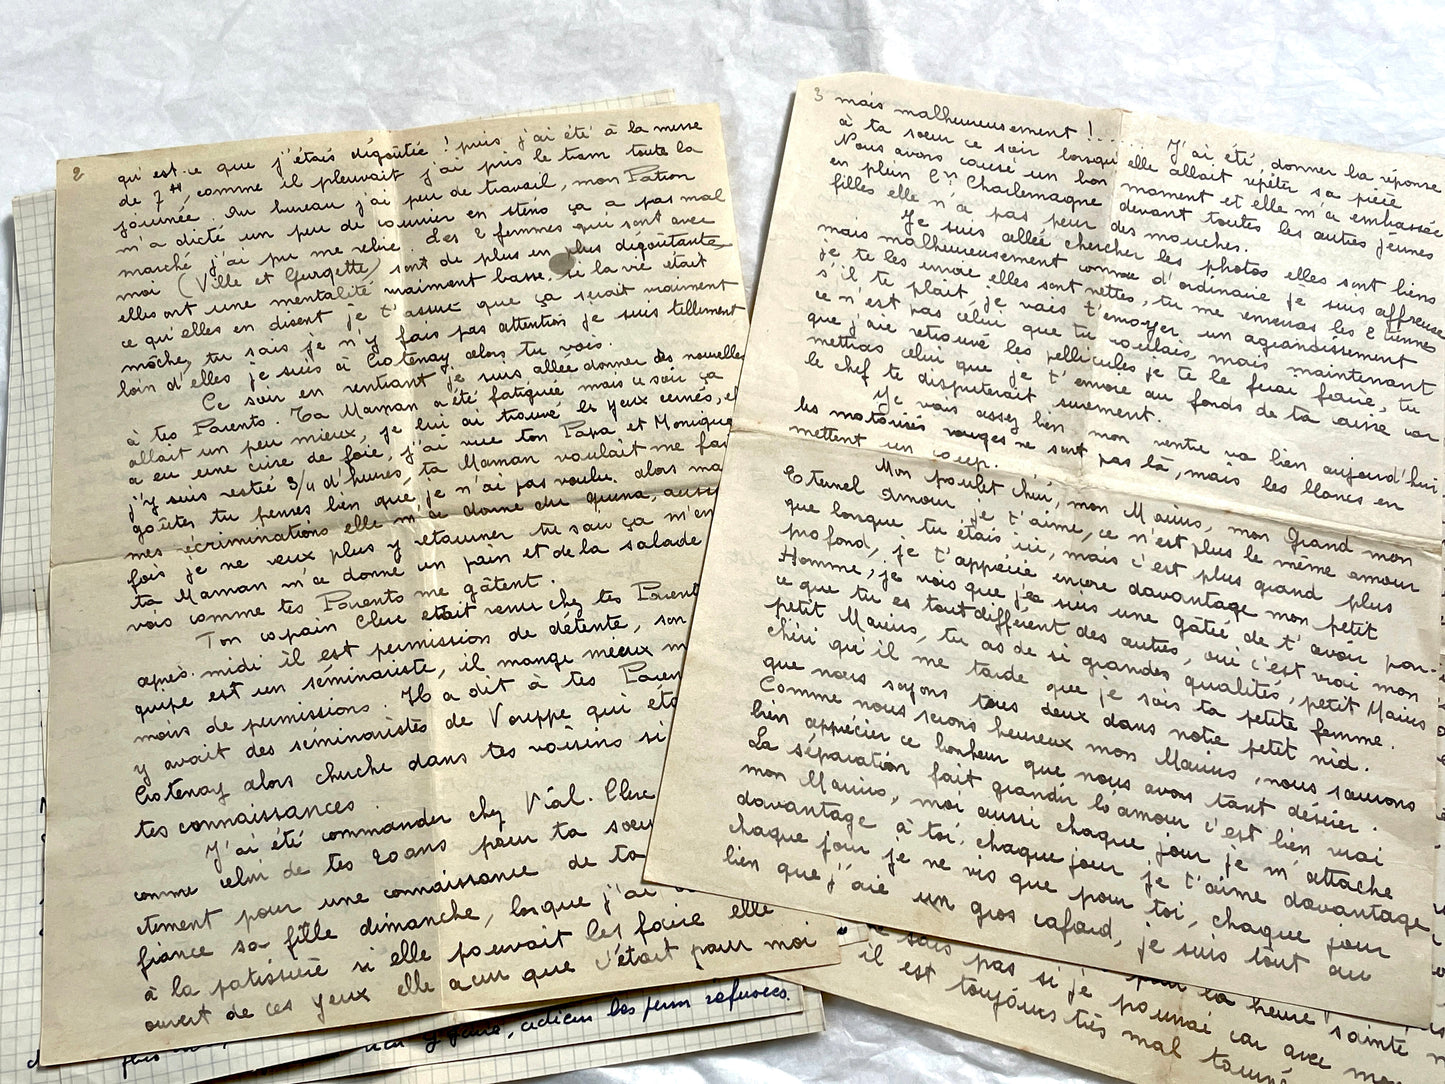 2
qu'est-ce que j'étais dégoûtée ! puis j'ai été à la messe
de 7H, comme il pleuvait j'ai pris le tram toute la
journée. Au bureau j'ai peu de travail, mon Patron
m'a dicté un peu de courrier en sténo ça a pas mal
marché j'ai pu me relire. Les 2 femmes qui sont avec
moi (Ville et Gurgette) sont de plus en plus dégoûtantes
elles ont une mentalité vraiment basse, si la vie était
ce qu'elles en disent je t'assure que ça serait vraiment
moche, tu sais je n'y fais pas attention je suis tellement
loin d'elles je suis à Crotenay alors tu vois.
Ce soir en rentrant je suis allée donner des nouvelles
à tes Parents. Ta Maman a été fatiguée mais ce soir ça
allait un peu mieux, je lui ai trouvé les yeux cernés, elle
a eu une crise de foie, j'ai vue ton Papa et Monique
j'y suis restée 3/4 d'heures, ta Maman voulait me faire
goûter tu penses bien que je n'ai pas voulu. alors malgré
mes récriminations elle m'a donné du quina, aussi
fois je ne veux plus y retourner tu sais ça m'en
ta Maman m'a donné un pain et de la salade
vois comme tes Parents me gâtent.
Ton copain Clerc était venu chez tes Parents
après-midi il est permission de détente, son
quipe est un séminariste, il mange mieux m
moins de permissions. Il a dit à tes Paren
y avait des séminaristes de Voreppe qui éta
Crotenay alors cherche dans tes voisins si
tes connaissances.
J'ai été commander chez Vial. Clerc
comme celui de tes 20 ans pour ta soeu
tement pour une connaissance de ta
fiance sa fille dimanche, lorsque j'ai
à la patisserie si elle pouvait les faire elle
ouvert de ces yeux elle a cru que c'était pour moi
3
mais malheureusement !...
J'ai été donner la réponse
à ta soeur ce soir lorsqu'elle allait répéter sa pièce
Nous avons causé un bon moment et elle m'a embrassée
en plein Crs Charlemagne devant toutes les autres jeunes
filles elle n'a pas peur des mouches.
Je suis allée chercher les photos elles sont biens
mais malheureusement comme d'ordinaire je suis affreuse
je te les envoie elles sont nettes, tu me renverras les 2 tiennes
s'il te plait, je vais t'envoyer un agrandissement
ce n'est pas celui que tu voulais mais maintenant
que j'aie retrouvé les pellicules je te le ferai faire, tu
mettras celui que je t'envoie au fonds de ta caisse car
le chef te disputerait surement.
Je vais assez bien, mon ventre va bien aujourd'hui.
les motorisés rouges ne sont pas là, mais les blancs en
mettent un coup.
Mon poulet cheri, mon Marius, mon Grand mon
Eternel Amour je t'aime, ce n'est plus le même amour
que lorsque tu étais ici, mais c'est plus grand plus
profond, je t'apprécie encore davantage mon petit
Homme, je vois que je suis une gâtée de t'avoir par-
ce que tu es tout différent des autres, oui c'est vrai mon
petit Marius, tu as de si grandes qualités, petit Marius
chéri qu'il me tarde que je sois ta petite femme.
que nous soyons tous deux dans notre petit nid.
Comme nous serons heureux mon Marius, nous saurons
bien apprécier ce bonheur que nous avons tant désirer.
La séparation fait grandir l'amour c'est bien vrai
mon Marius, moi aussi chaque jour je m'attache
davantage à toi, chaque jour je t'aime davantage
chaque jour je ne vis que pour toi, chaque jour
bien que j'aie un gros cafard, je suis tout au
ne sais pas si je pourrai car avec
la heure sainte
il est toujours très mal tourné
y faire, adieu les perm refusées.